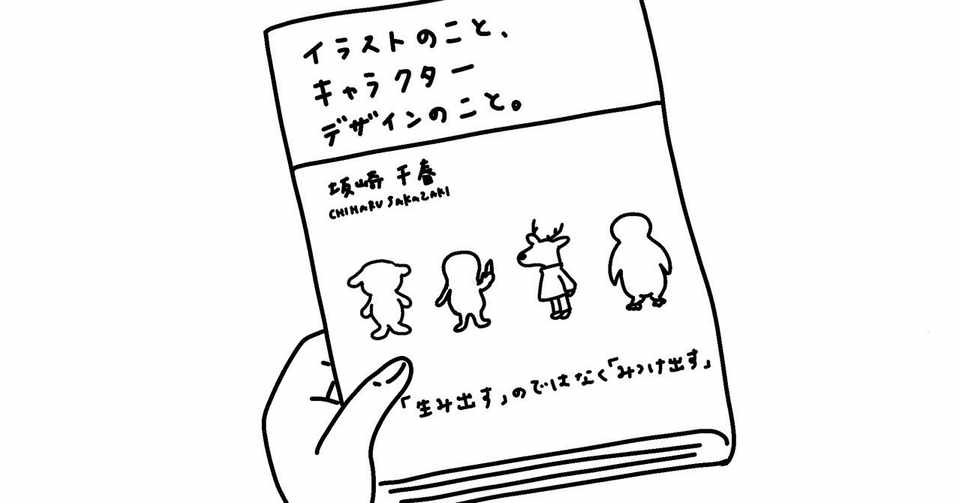 イラストのこと、
キャラクター
デザインのこと。
坂崎 千春
CHIHARU SaKaZAKI
「生み出す」のではなく「みつけ出す」